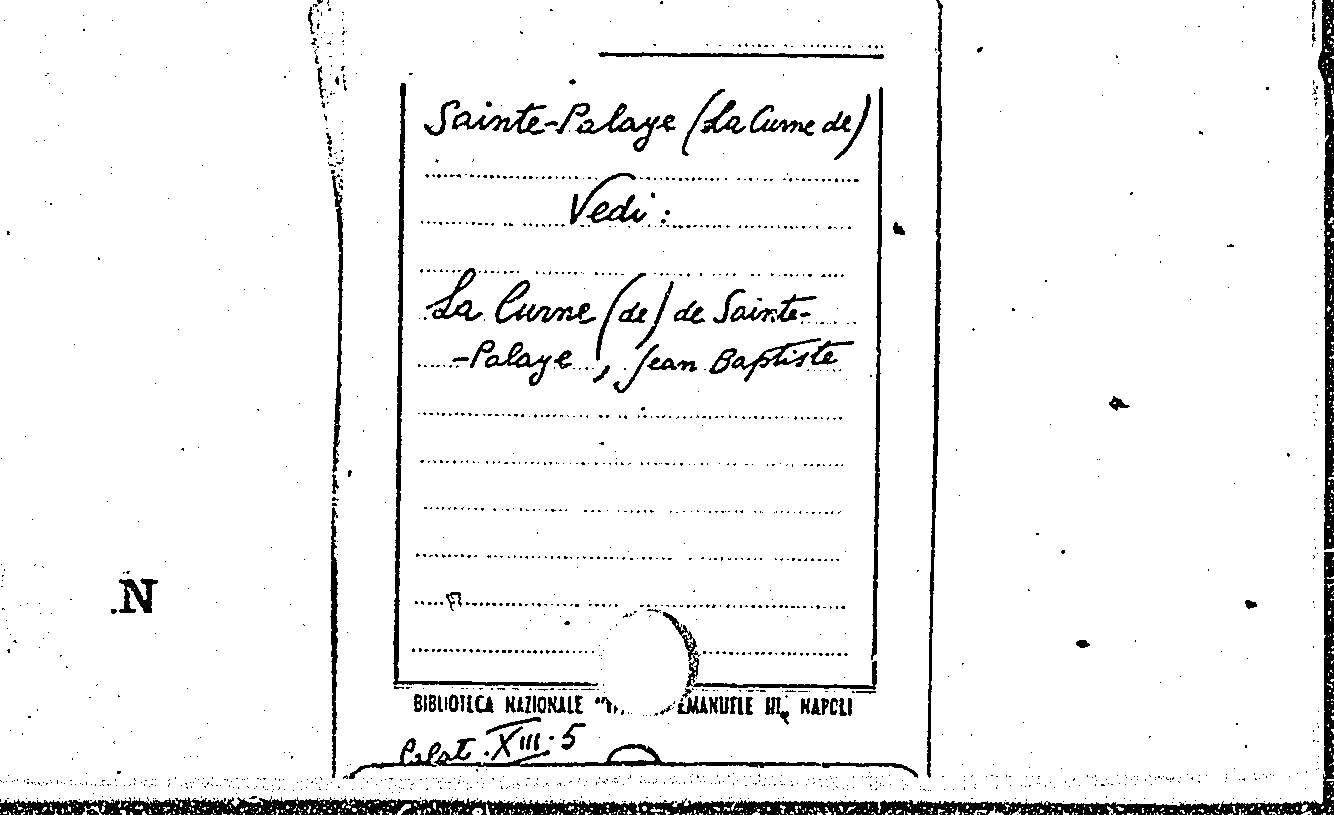 Sainte-Palaye (La Curne de)
Vedi:
La Curne (de) de Sainte-
-Palaye, Jean Baptiste
N
BIBLIOTECA NAZIONALE EMANUELE III, NAPOLI
XIII. 5